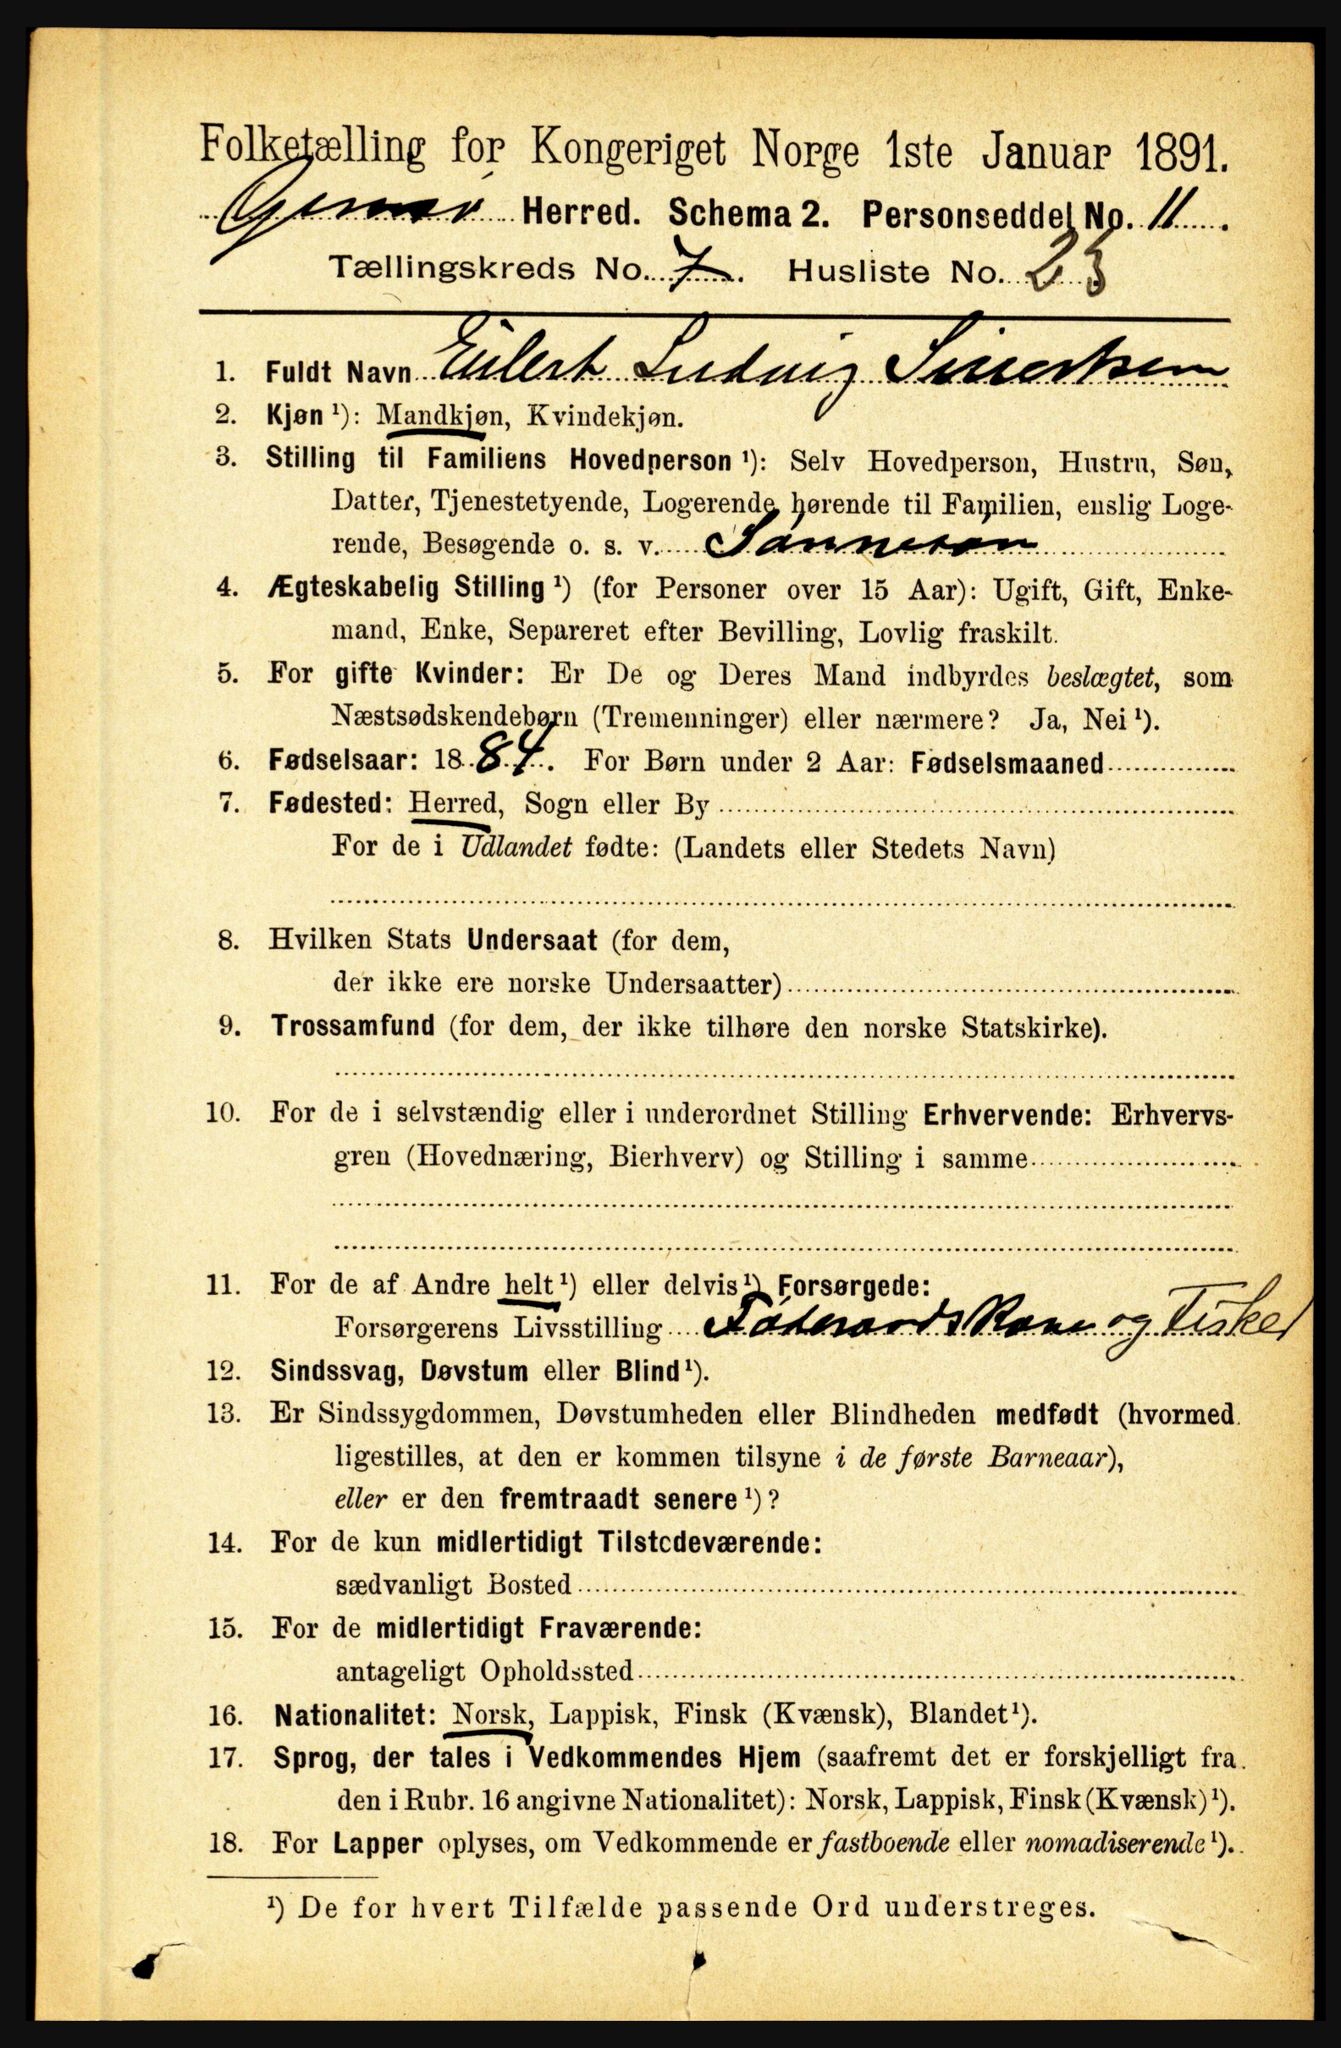 Folketælling for Kongeriget Norge 1ste Januar 1891.
Gimsø Herred. Schema 2. Personseddel No. 11.
Tællingskreds No. 7. Husliste No. 23
1. Fuldt Navn Eilert Ludvig Sivertsen
2. Kjøn ¹): Mandkjøn, Kvindekjøn.
3. Stilling til Familiens Hovedperson ¹): Selv Hovedperson, Hustru, Søn,
Datter, Tjenestetyende, Logerende hørende til Familien, enslig Loge-
rende, Besøgende o. s. v. Sønnesøn
4. Ægteskabelig Stilling ¹) (for Personer over 15 Aar): Ugift, Gift, Enke-
mand, Enke, Separeret efter Bevilling, Lovlig fraskilt.
5. For gifte Kvinder: Er De og Deres Mand indbyrdes beslægtet, som
Næstsødskendebørn (Tremenninger) eller nærmere? Ja, Nei ¹).
6. Fødselsaar: 1884. For Børn under 2 Aar: Fødselsmaaned
7. Fødested: Herred, Sogn eller By
For de i Udlandet fødte: (Landets eller Stedets Navn)
8. Hvilken Stats Undersaat (for dem,
der ikke ere norske Undersaatter)
9. Trossamfund (for dem, der ikke tilhøre den norske Statskirke).
10. For de i selvstændig eller i underordnet Stilling Erhvervende: Erhvervs-
gren (Hovednæring, Bierhverv) og Stilling i samme
11. For de af Andre helt ¹) eller delvis ¹) Forsørgede:
Forsørgerens Livsstilling Føderaadskone og Fisker
12. Sindssvag, Døvstum eller Blind ¹).
13. Er Sindssygdommen, Døvstumheden eller Blindheden medfødt (hvormed
ligestilles, at den er kommen tilsyne i de første Barneaar),
eller er den fremtraadt senere ¹)?
14. For de kun midlertidigt Tilstedeværende:
sædvanligt Bosted
15. For de midlertidigt Fraværende:
antageligt Opholdssted
16. Nationalitet: Norsk, Lappisk, Finsk (Kvænsk), Blandet ¹).
17. Sprog, der tales i Vedkommendes Hjem (saafremt det er forskjelligt fra
den i Rubr. 16 angivne Nationalitet): Norsk, Lappisk, Finsk (Kvænsk) ¹).
18. For Lapper oplyses, om Vedkommende er fastboende eller nomadiserende ¹).
¹) De for hvert Tilfælde passende Ord understreges.